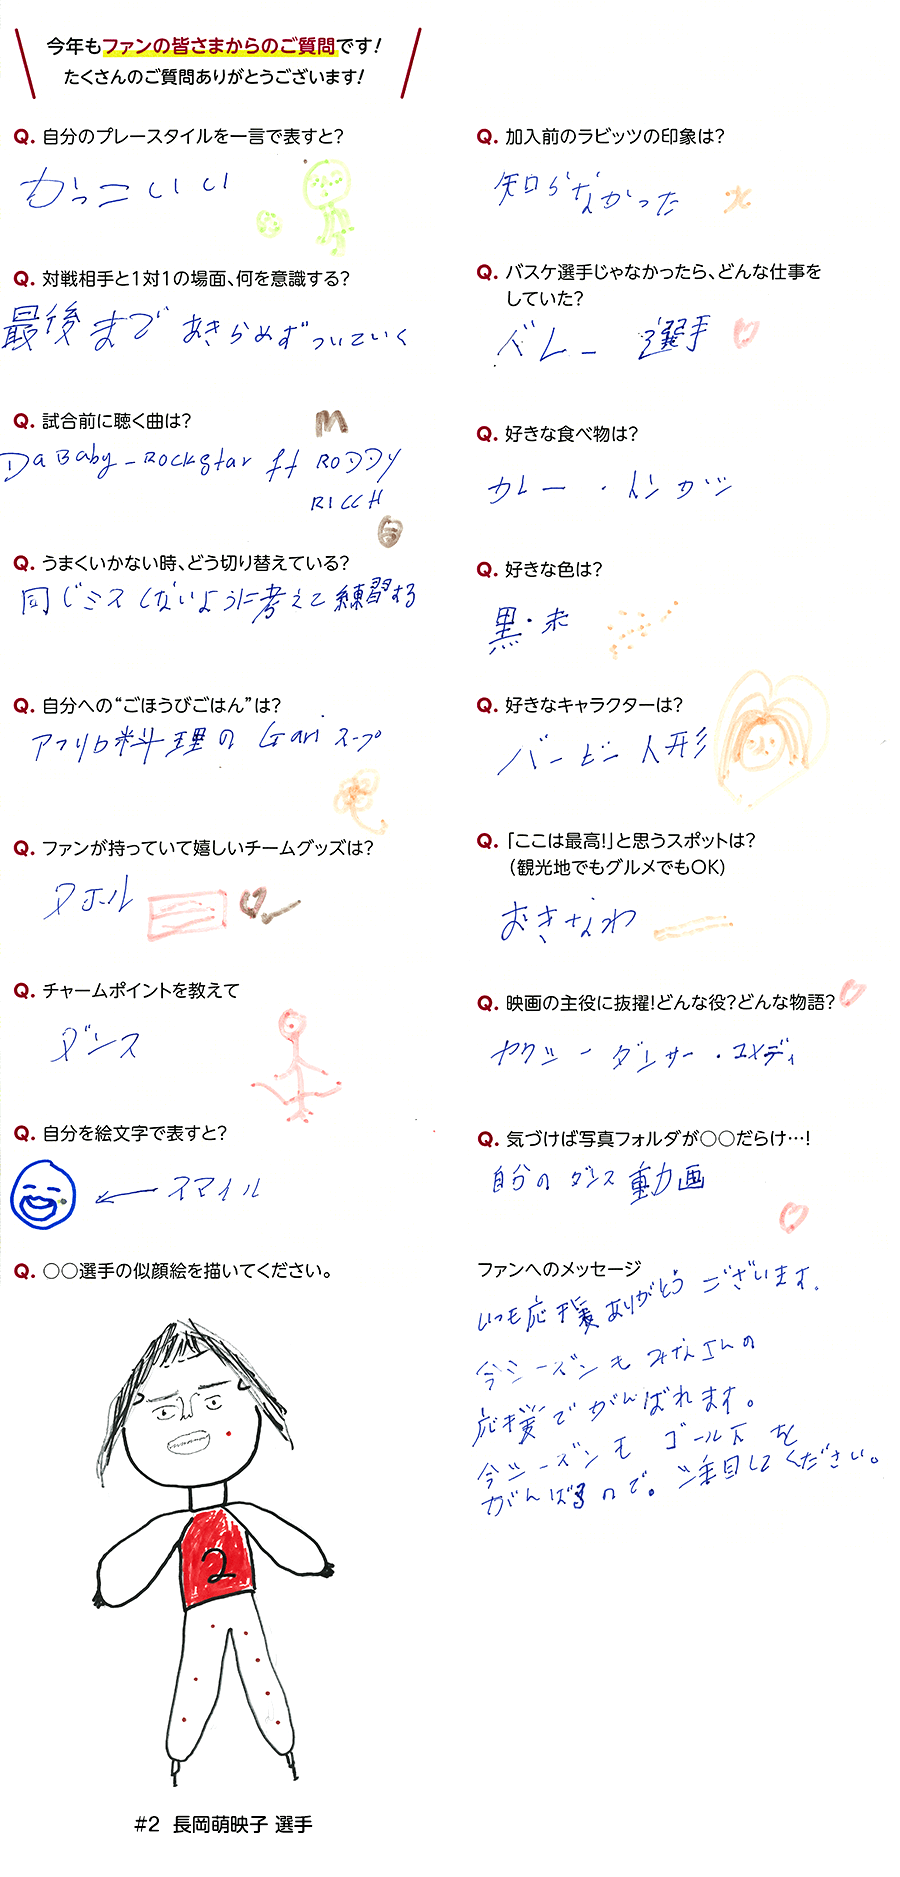 今年もファンの皆さまからのご質問です!
たくさんのご質問ありがとうございます!
Q. 自分のプレースタイルを一言で表すと?
かっこいい
Q. 対戦相手と1対1の場面、何を意識する?
最後まであきらめずついていく
Q. 試合前に聴く曲は?
DaBaby - ROCKstar ft RODDY
RICCH
Q. うまくいかない時、どう切り替えている?
同じミスしないように考えて練習する
Q. 自分への“ごほうびごはん”は?
アフリカ料理の Gari スープ
Q. ファンが持っていて嬉しいチームグッズは?
タオル
Q. チャームポイントを教えて
ダンス
Q. 自分を絵文字で表すと?
スマイル
Q. ○○選手の似顔絵を描いてください。
2
#2 長岡萌映子 選手
Q. 加入前のラビッツの印象は?
知らなかった
Q. バスケ選手じゃなかったら、どんな仕事を
していた?
バレー選手
Q. 好きな食べ物は?
カレー・トンカツ
Q. 好きな色は?
黒・赤
Q. 好きなキャラクターは?
バービー人形
Q. 「ここは最高!」と思うスポットは?
(観光地でもグルメでもOK)
おきなわ
Q. 映画の主役に抜擢!どんな役?どんな物語?
ダンサー・コメディ
Q. 気づけば写真フォルダが○○だらけ…!
自分のダンス動画
ファンへのメッセージ
いつも応援ありがとうございます。
今シーズンもみなさんの
応援でがんばれます。
今シーズンもゴールドを
がんばるので。注目してください。